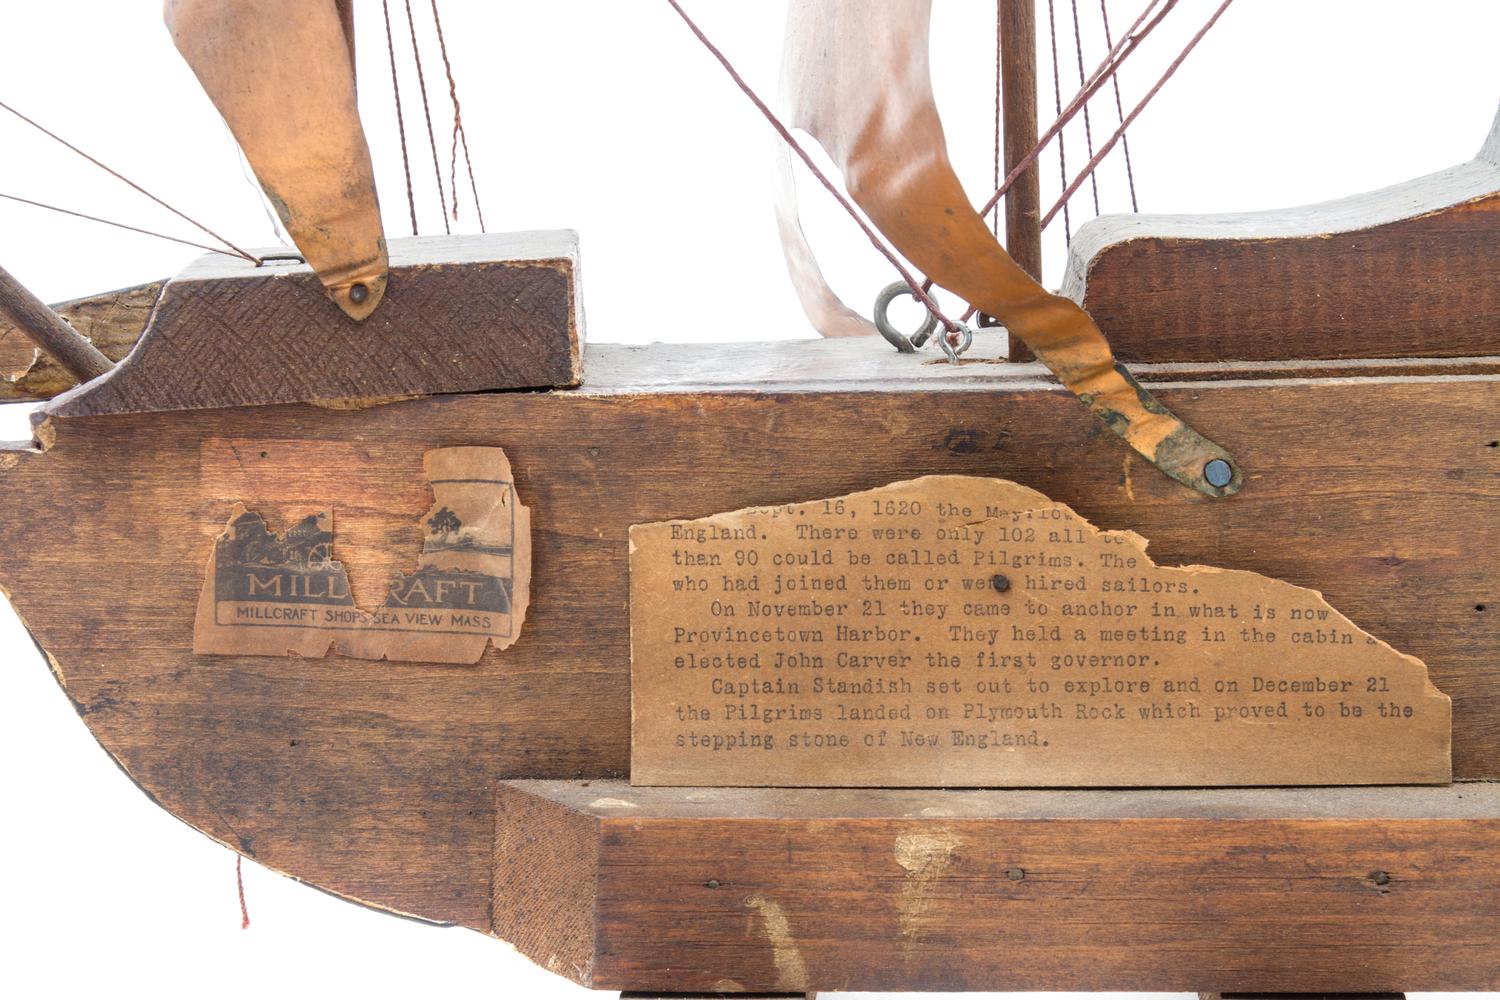 MILLCRAFT
MILLCRAFT SHOPS SEA VIEW MASS
Sept. 16, 1620 the Mayflow
England. There were only 102 all to
than 90 could be called Pilgrims. The
who had joined them or were hired sailors.
On November 21 they came to anchor in what is now
Provincetown Harbor. They held a meeting in the cabin
elected John Carver the first governor.
Captain Standish set out to explore and on December 21
the Pilgrims landed on Plymouth Rock which proved to be the
stepping stone of New England.